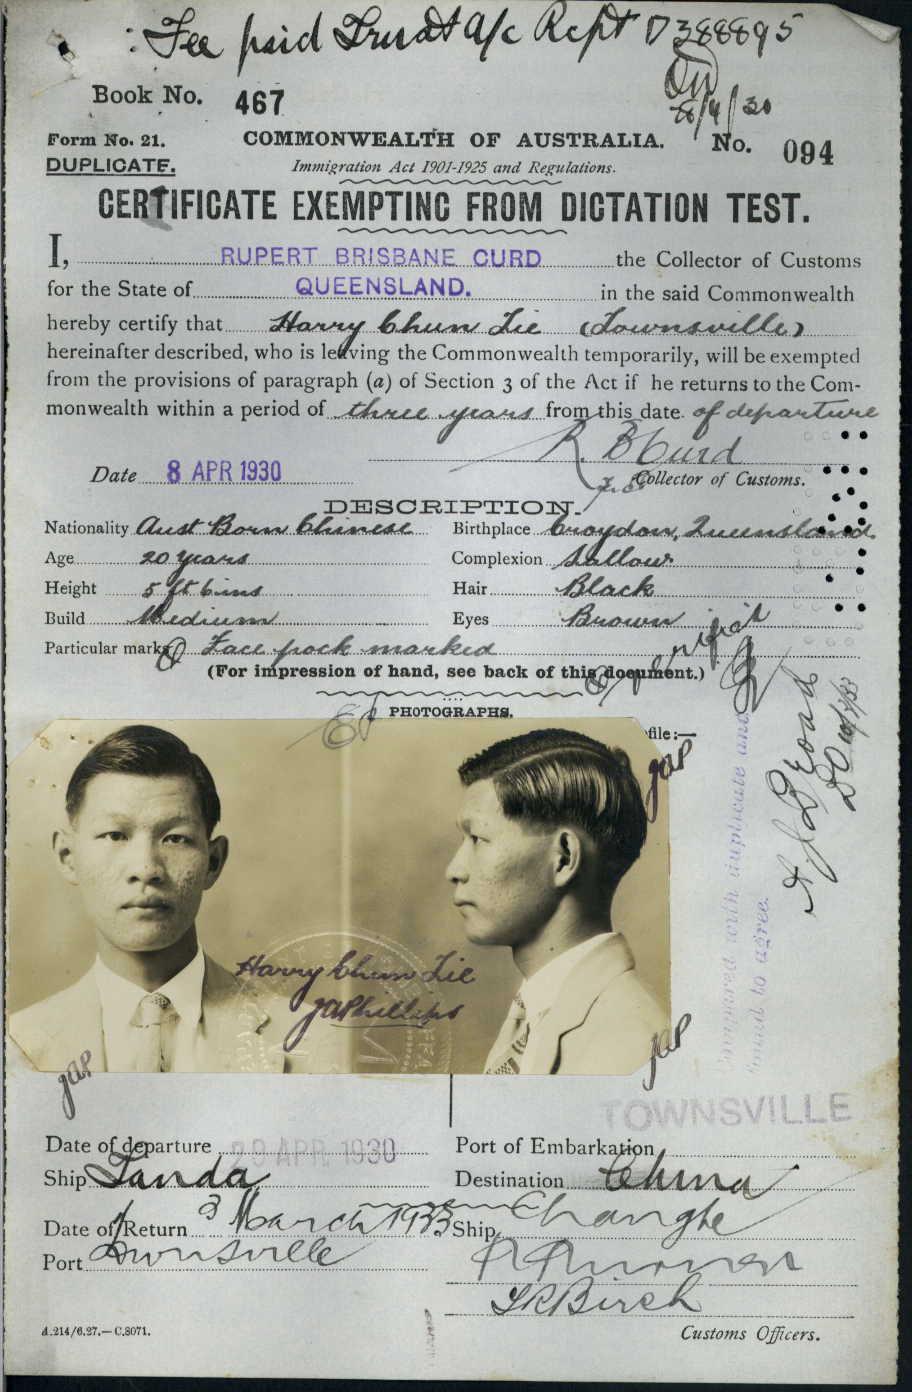 : Fee paid Trust a/c Rcpt D388895
8/4/30
Book No. 467
Form No. 21. COMMONWEALTH OF AUSTRALIA. No. 094
DUPLICATE. Immigration Act 1901-1925 and Regulations.
CERTIFICATE EXEMPTING FROM DICTATION TEST.
I, RUPERT BRISBANE CURD the Collector of Customs
for the State of QUEENSLAND. in the said Commonwealth
hereby certify that Harry Chun Tie (Townsville)
hereinafter described, who is leaving the Commonwealth temporarily, will be exempted
from the provisions of paragraph (a) of Section 3 of the Act if he returns to the Com-
monwealth within a period of three years from this date of departure
R. B Curd
Date 8 APR 1930 Collector of Customs.
DESCRIPTION.
Nationality Aust Born Chinese Birthplace Croydon, Queensland.
Age 20 years Complexion Sallow
Height 5 ft 6 ins Hair Black
Build Medium Eyes Brown
Particular marks Face pock marked
(For impression of hand, see back of this document.)
PHOTOGRAPHS.
file:—
JAP
Compared with duplicate and
found to agree.
Harry Chun Tie
JAPhillips
JAP
JAP
TOWNSVILLE
Date of departure 29 APR 1930 Port of Embarkation
Ship Tanda Destination China
Date of Return 3 March 1933 Ship Changte
Port Townsville
Birch
A.214/6.27.—C.8071. Customs Officers.